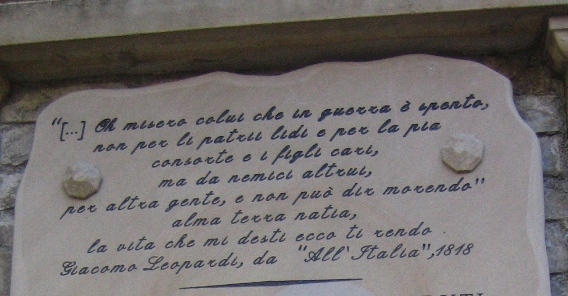 "[...] Oh misero colui che in guerra è spento,
non per li patrii lidi e per la pia
consorte e i figli cari,
ma da nemici altrui,
per altra gente, e non può dir morendo"
alma terra natia,
la vita che mi desti ecco ti rendo
Giacomo Leopardi, da "All' Italia", 1818